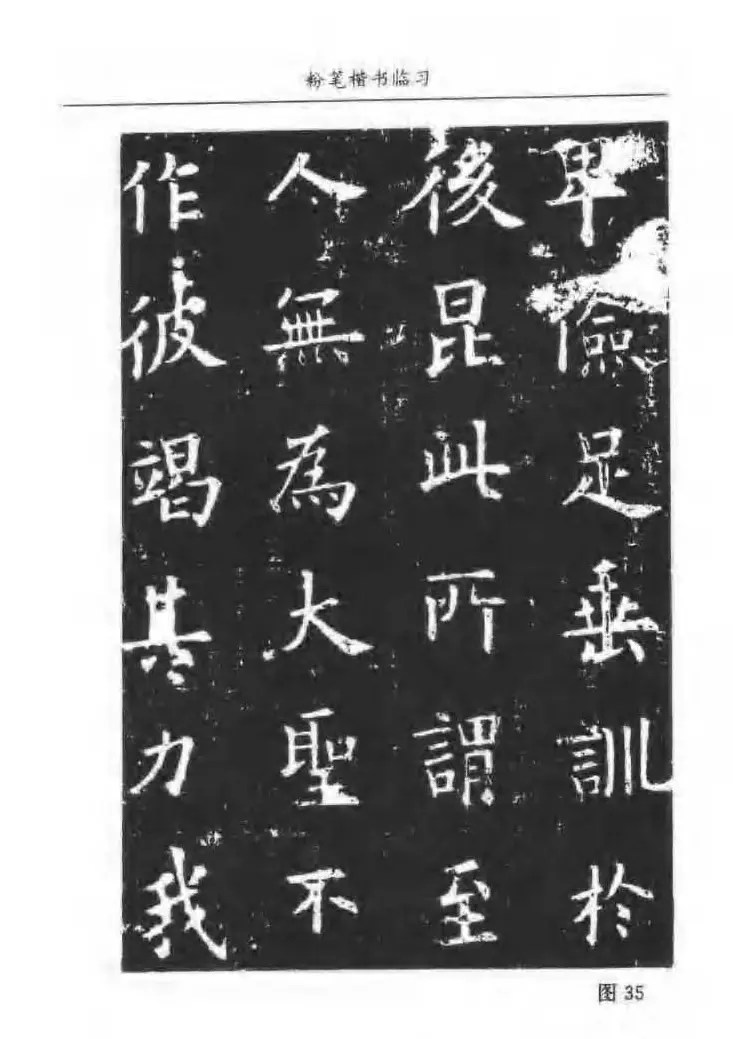 粉笔楷书临习
卑儉足垂訓於
後昆此所謂至
人無為大聖不
作彼竭其力我
图 35